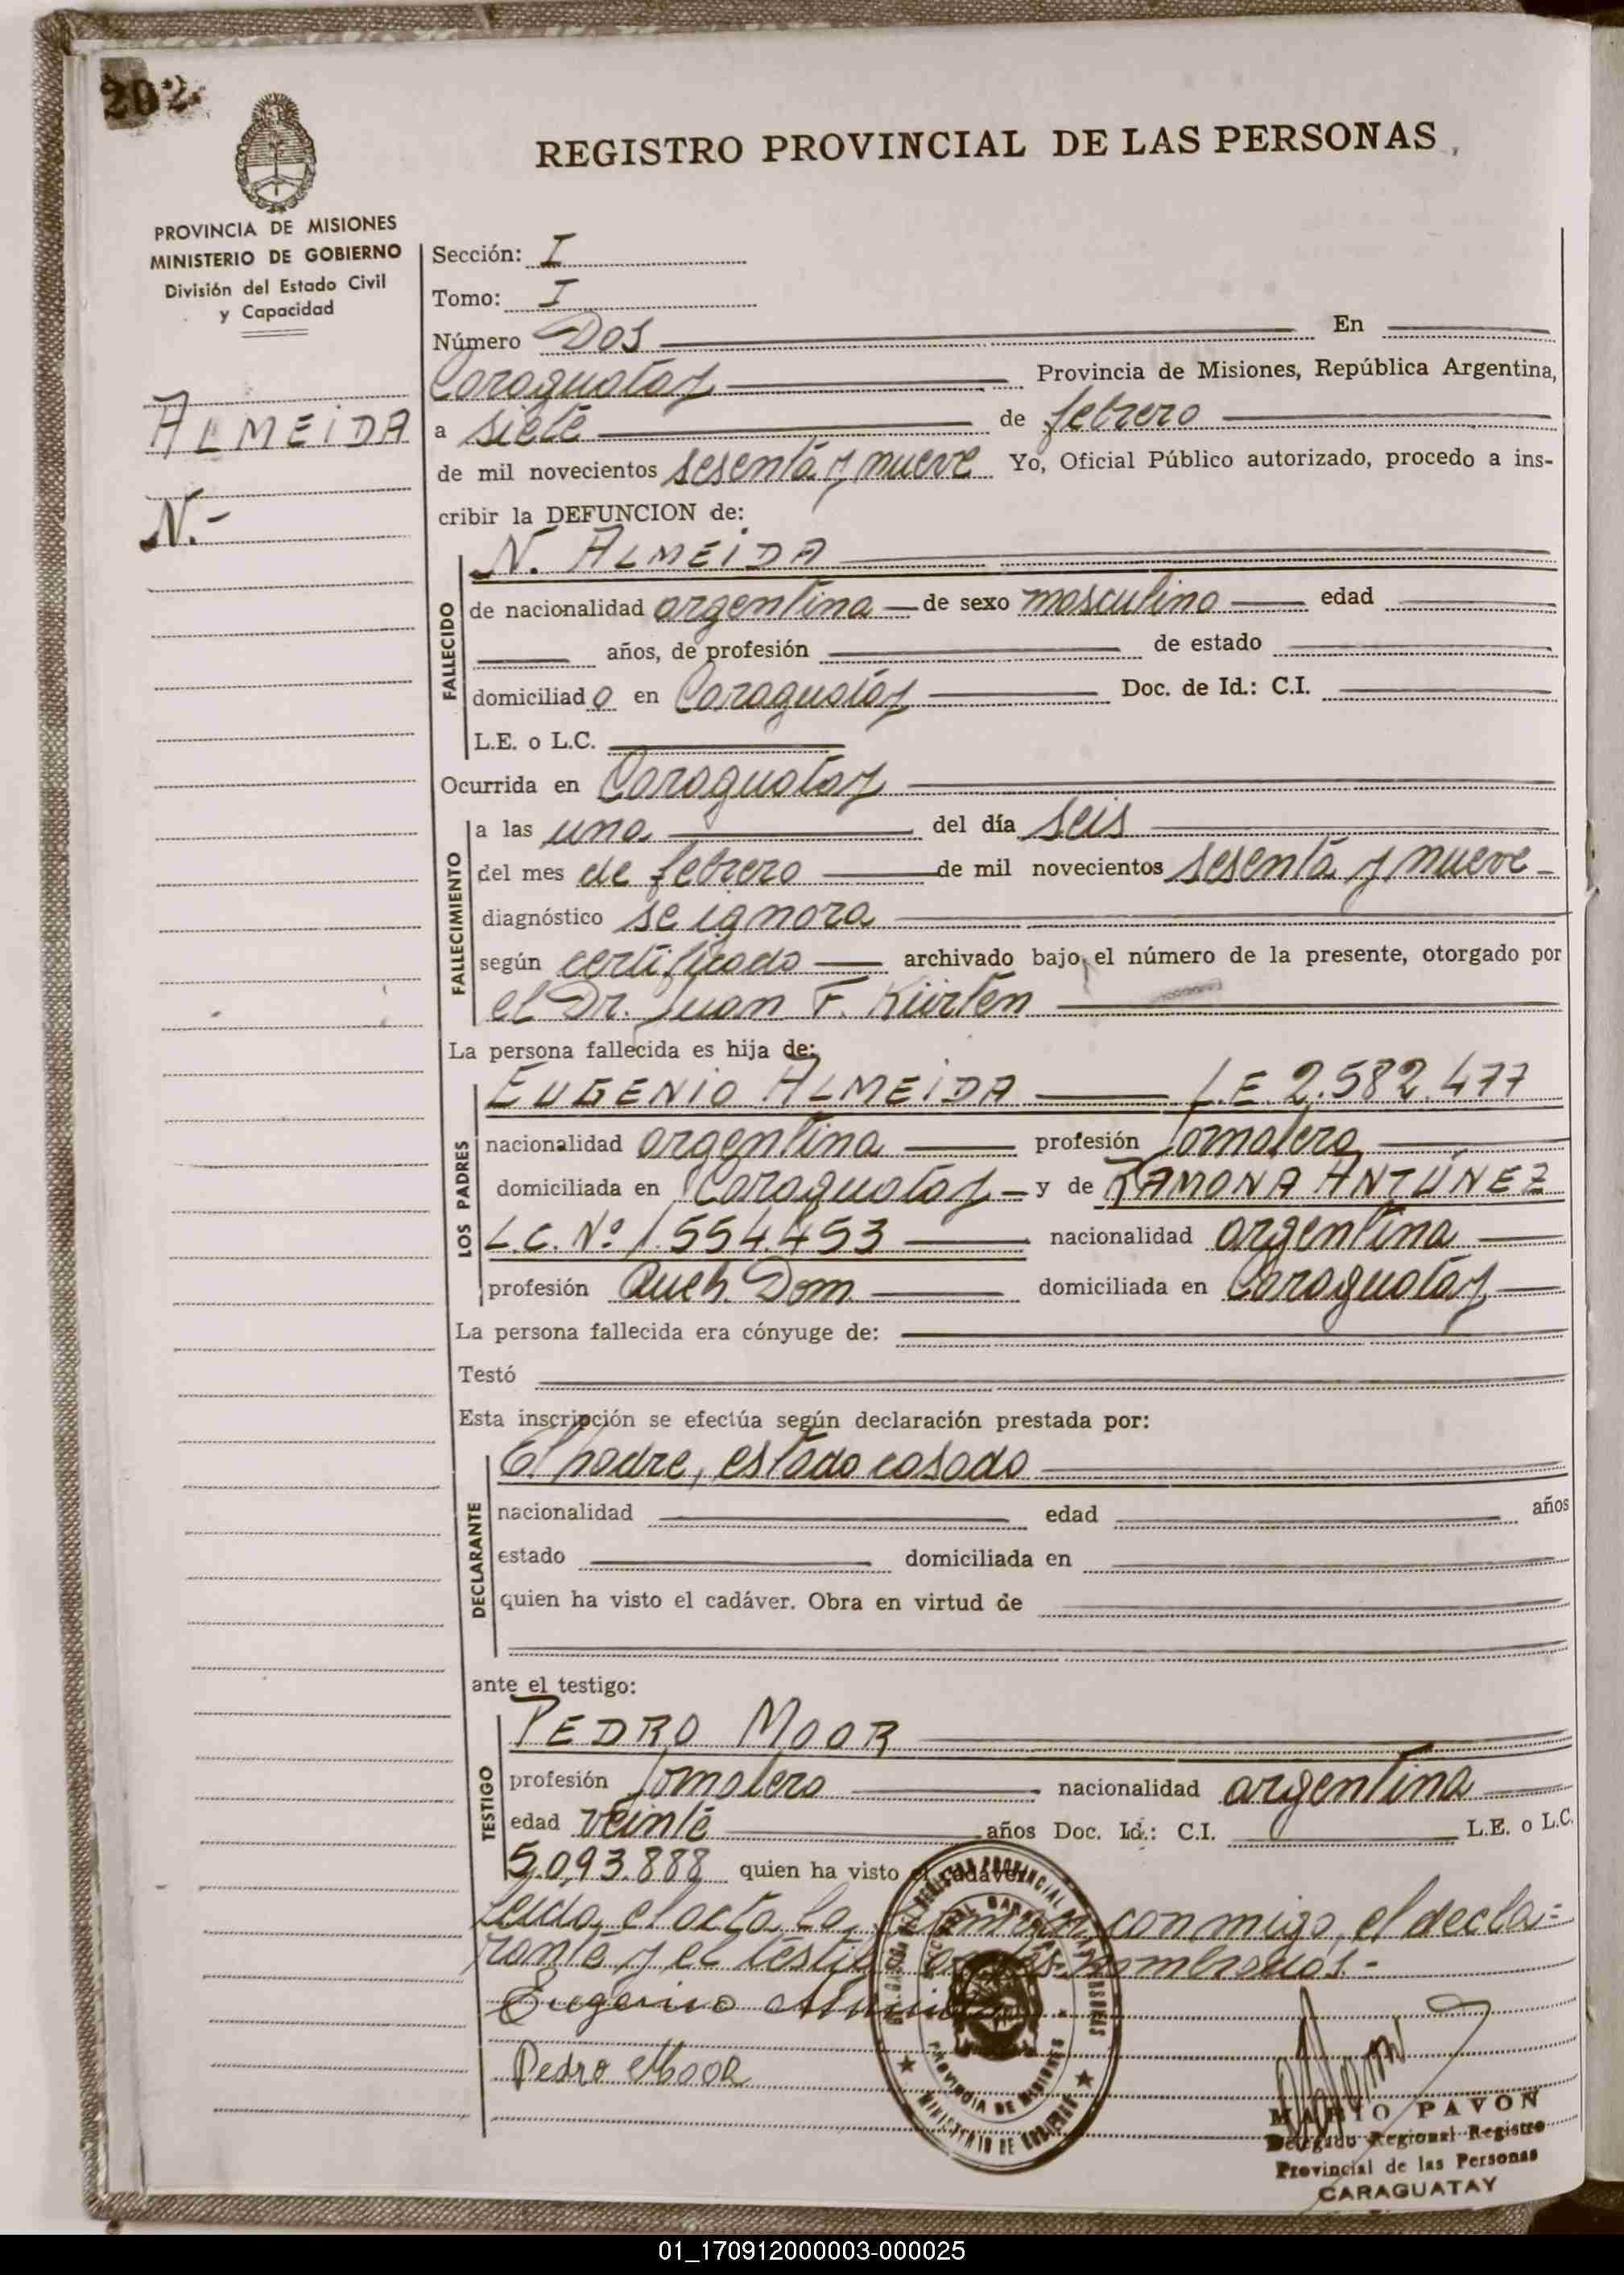 202
REGISTRO PROVINCIAL DE LAS PERSONAS
PROVINCIA DE MISIONES
MINISTERIO DE GOBIERNO
División del Estado Civil
y Capacidad
ALMEIDA
N.-
Sección: I
Tomo: I
Número Dos En
Caraguatay Provincia de Misiones, República Argentina,
a siete de febrero
de mil novecientos sesenta y nueve Yo, Oficial Público autorizado, procedo a ins-
cribir la DEFUNCION de:
FALLECIDO
N. ALMEIDA
de nacionalidad argentina de sexo masculino edad
años, de profesión de estado
domiciliado en Caraguatay Doc. de Id.: C.I.
L.E. o L.C.
Ocurrida en Caraguatay
FALLECIMIENTO
a las una del día seis
del mes de febrero de mil novecientos sesenta y nueve
diagnóstico se ignora
según certificado archivado bajo el número de la presente, otorgado por
el Dr. Juan F. Kürten
La persona fallecida es hija de:
LOS PADRES
EUGENIO ALMEIDA L.E. 2.582.477
nacionalidad argentina profesión Jornalero
domiciliada en Caraguatay y de RAMONA ANTÚNEZ
L.C. Nº 1.554.453 nacionalidad argentina
profesión Queh. Dom domiciliada en Caraguatay
La persona fallecida era cónyuge de:
Testó
Esta inscripción se efectúa según declaración prestada por:
DECLARANTE
El padre, estado casado
nacionalidad edad años
estado domiciliada en
quien ha visto el cadáver. Obra en virtud de
ante el testigo:
TESTIGO
PEDRO MOOR
profesión Jornalero nacionalidad argentina
edad veinte años Doc. Id.: C.I. L.E. o L.C.
5.093.888 quien ha visto el cadáver
Leída el acta la firman conmigo, el decla=
rante y el testigo nombrados.-
Eugenio Almeida
Pedro Moor
PROVINCIA DE MISIONES
MINISTERIO DE GOBIERNO
MARIO PAVON
Delegado Regional Registro
Provincial de las Personas
CARAGUATAY
01_170912000003-000025